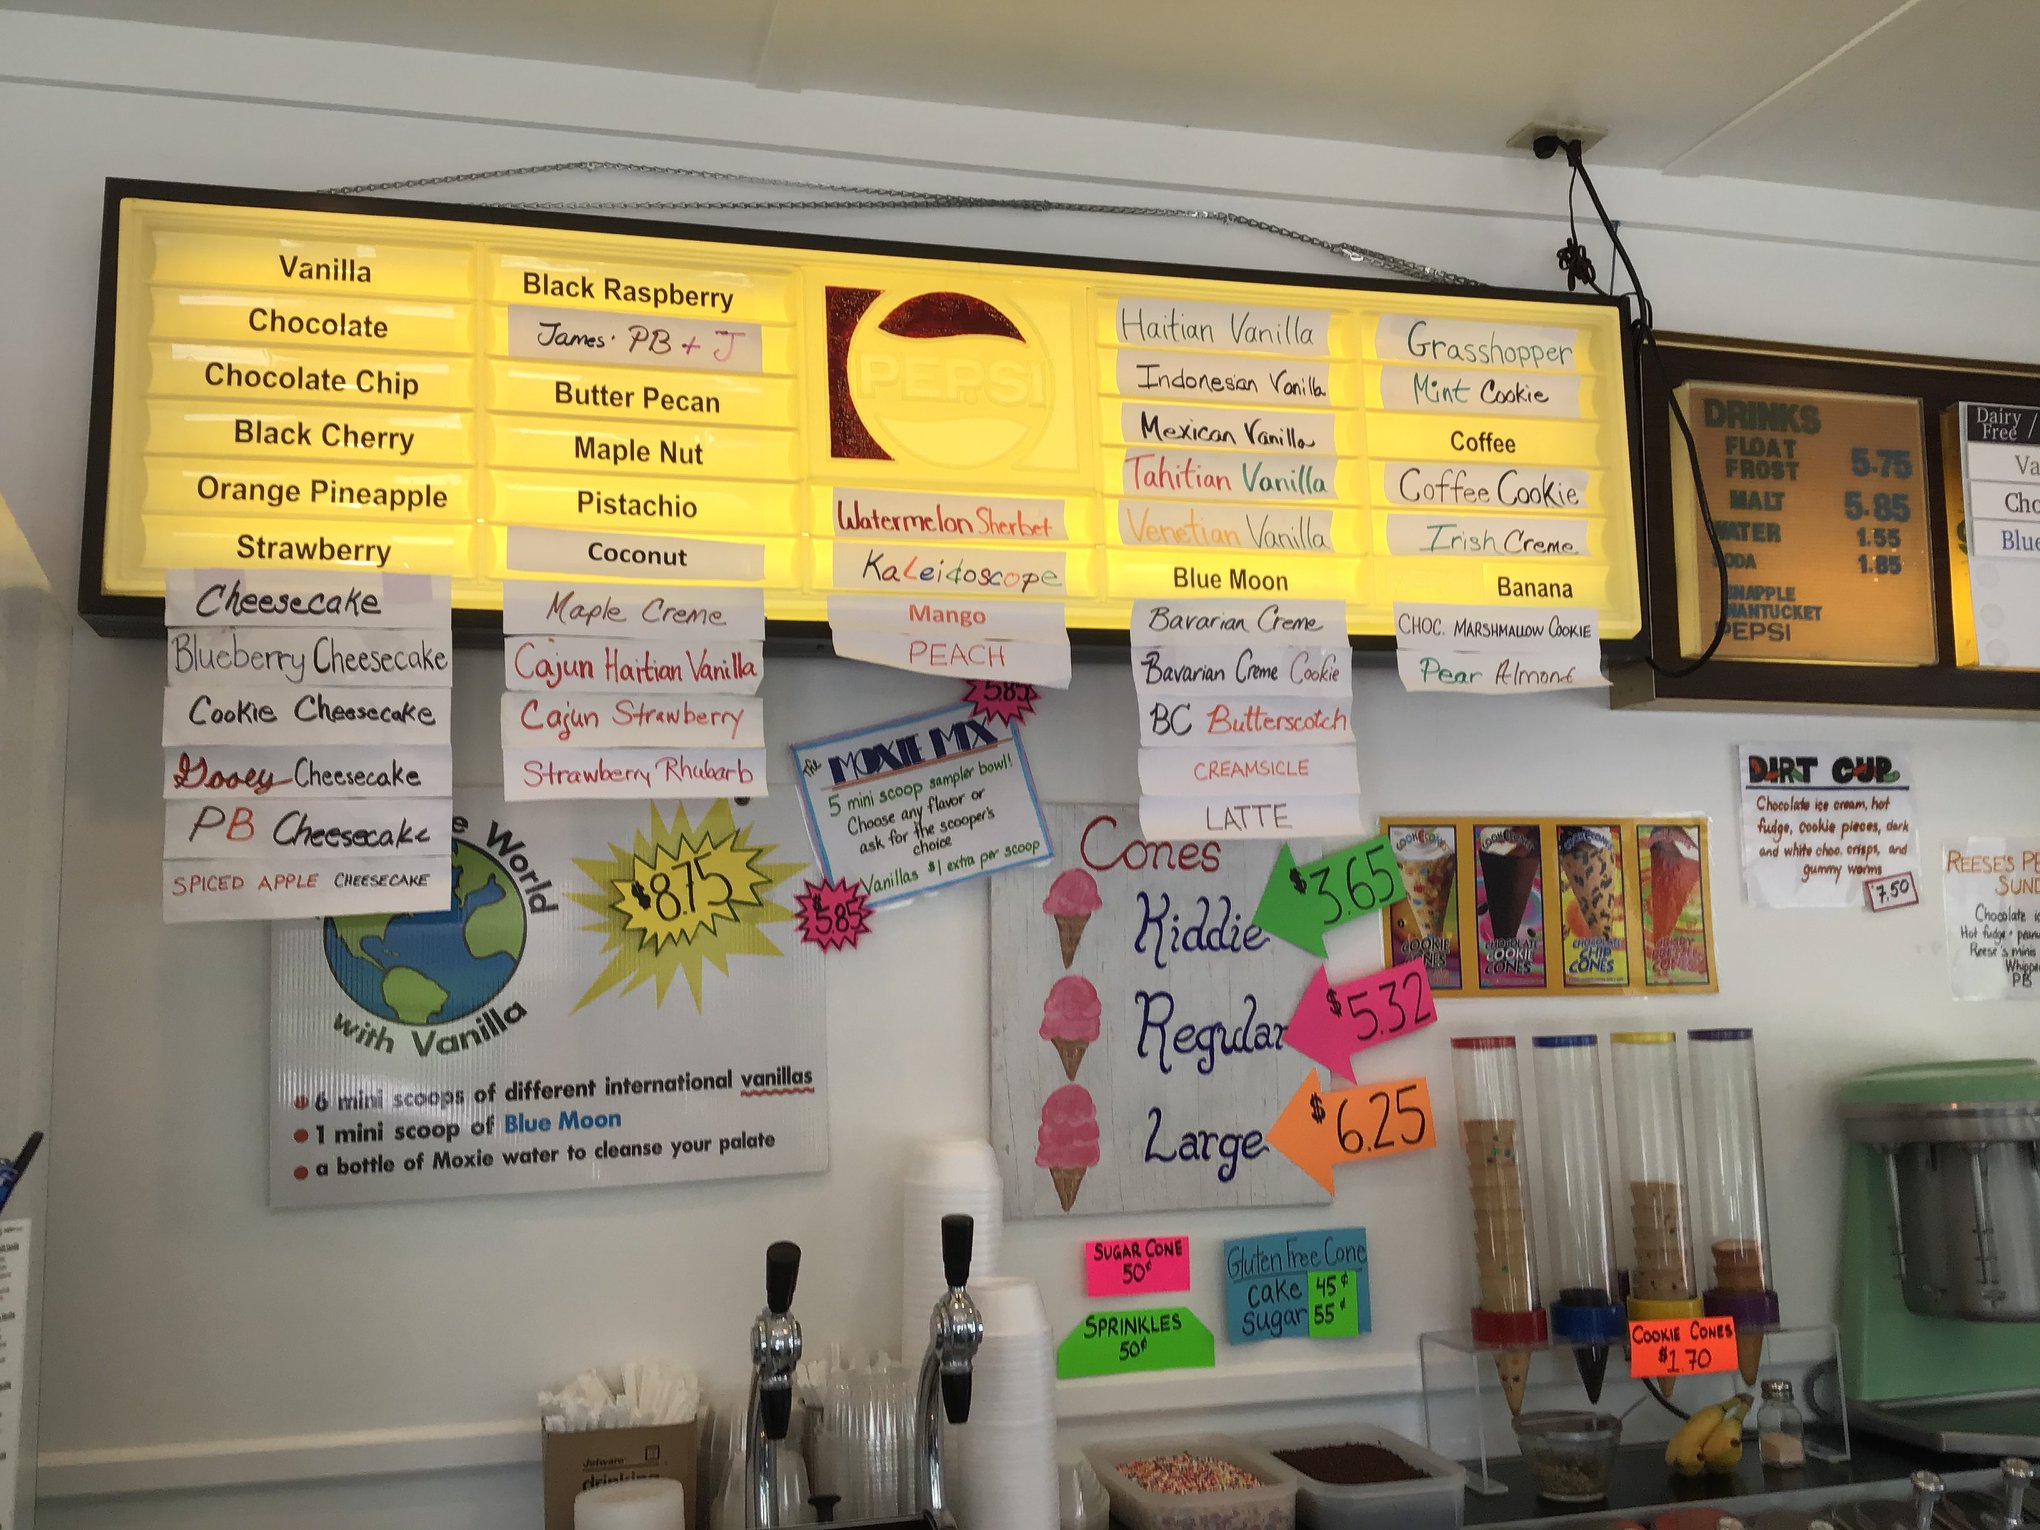 Vanilla
Chocolate
Chocolate Chip
Black Cherry
Orange Pineapple
Strawberry
Cheesecake
Blueberry Cheesecake
Cookie Cheesecake
Gooey Cheesecake
PB Cheesecake
SPICED APPLE CHEESECAKE
Black Raspberry
James' PB + J
Butter Pecan
Maple Nut
Pistachio
Coconut
Maple Creme
Cajun Haitian Vanilla
Cajun Strawberry
Strawberry Rhubarb
PEPSI
Watermelon Sherbet
Kaleidoscope
Mango
PEACH
Haitian Vanilla
Indonesian Vanilla
Mexican Vanilla
Tahitian Vanilla
Venetian Vanilla
Blue Moon
Bavarian Creme
Bavarian Creme Cookie
BC Butterscotch
CREAMSICLE
LATTE
Grasshopper
Mint Cookie
Coffee
Coffee Cookie
Irish Creme
Banana
CHOC. MARSHMALLOW COOKIE
Pear Almond
DRINKS
FLOAT
FROST 5.75
MALT 5.85
WATER 1.55
SODA 1.85
PEPSI
Dairy /
Free
Va
Cho
Blue
5.85
The MOXIE MIX
5 mini scoop sampler bowl!
Choose any flavor or
ask for the scooper's
choice
Vanillas $1 extra per scoop
$5.85
e World
with Vanilla
$8.75
6 mini scoops of different international vanillas
1 mini scoop of Blue Moon
a bottle of Moxie water to cleanse your palate
Cones
Kiddie $3.65
Regular $5.32
Large $6.25
COOKIE
CONES
CHOCOLATE
COOKIE
CONES
CHOCOLATE
CHIP
CONES
CONES
DIRT CUP
Chocolate ice cream, hot
fudge, cookie pieces, dark
and white choc. crisps, and
gummy worms
7.50
REESE'S PE
SUND
Chocolate ic
Hot fudge + peanu
Reese's minis
Whippe
PB
SUGAR CONE
50¢
SPRINKLES
50¢
Gluten Free Cone
cake 45¢
sugar 55¢
COOKIE CONES
$1.70
Jetware
drinking